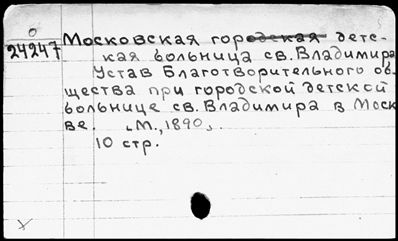 24247
Московская городская детс-
кая больница св. Владимира
Устав Благотворительного об-
щества при городской детской
больнице св. Владимира в Моск
ве. „М., 1890„.
10 стр.